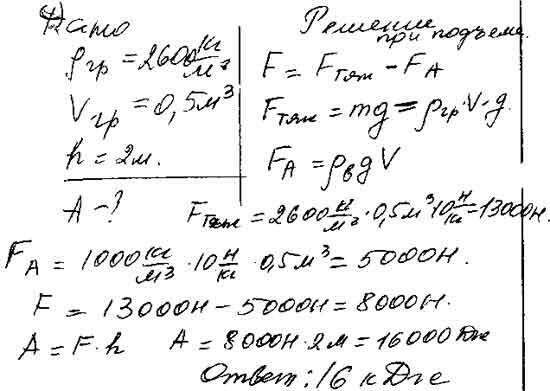 4) Дано
ρгр = 2600 кг/м³
Vгр = 0,5 м³
h = 2 м.
A – ?
Решение
при подъеме.
F = Fтяж – FA
Fтяж = mg = ρгр·V·g.
FA = ρв g V
Fтяж = 2600 кг/м³ · 0,5 м³ · 10 н/кг = 13000 н.
FA = 1000 кг/м³ · 10 н/кг · 0,5 м³ = 5000 н.
F = 13000 н – 5000 н = 8000 н.
A = F·h A = 8000 н · 2 м = 16000 Дж
Ответ: 16 кДж